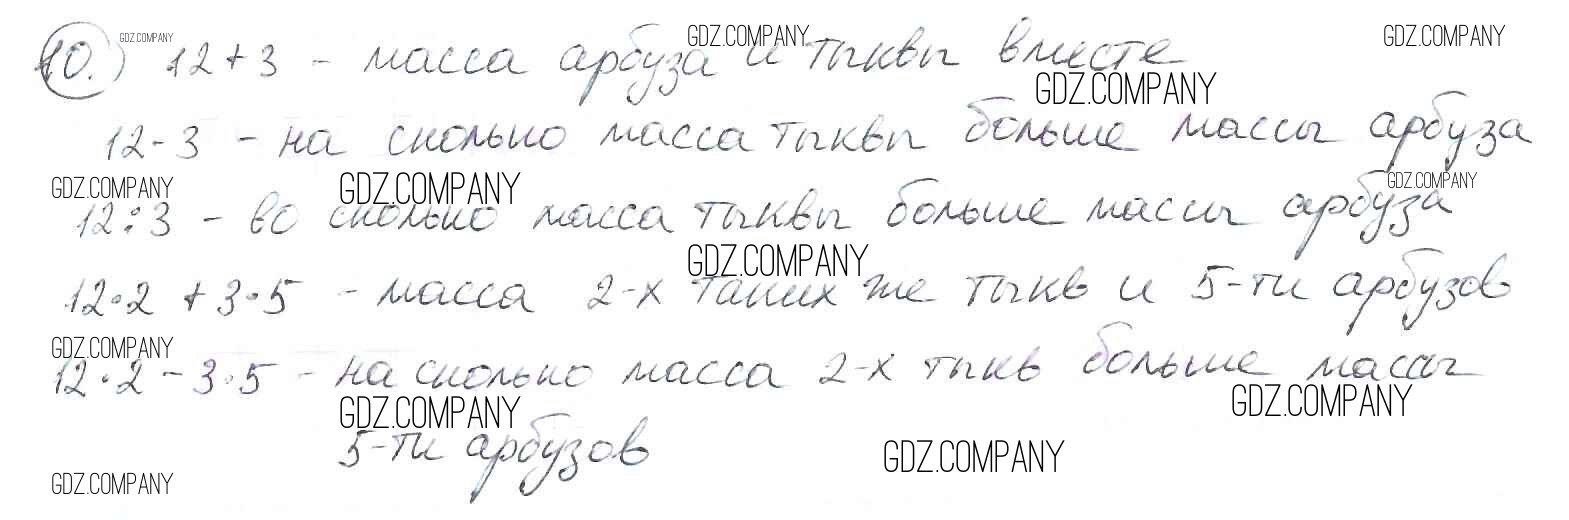 10.) 12+3 - масса арбуза и тыквы вместе
12-3 - на сколько масса тыквы больше массы арбуза
12:3 - во сколько масса тыквы больше массы арбуза
12·2 + 3·5 - масса 2-х таких же тыкв и 5-ти арбузов
12·2 - 3·5 - на сколько масса 2-х тыкв больше массы
5-ти арбузов
GDZ.COMPANY
GDZ.COMPANY
GDZ.COMPANY
GDZ.COMPANY
GDZ.COMPANY
GDZ.COMPANY
GDZ.COMPANY
GDZ.COMPANY
GDZ.COMPANY
GDZ.COMPANY
GDZ.COMPANY
GDZ.COMPANY
GDZ.COMPANY